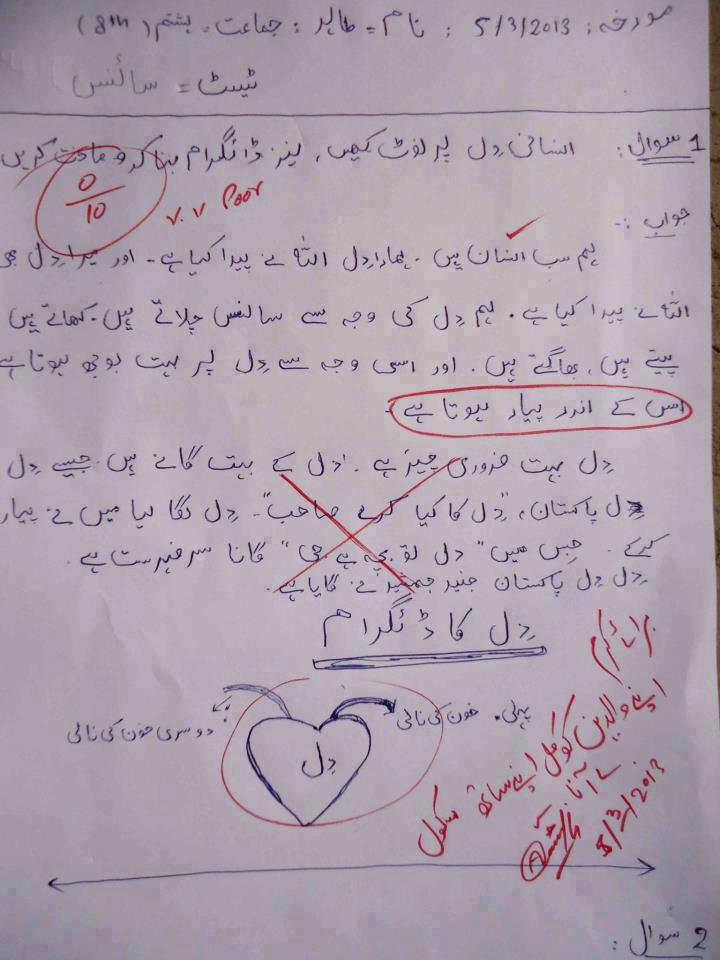 مورخہ: 5/3/2013 : نام = طاہر : جماعت = ہشتم (8th)
ٹیسٹ = سائنس
سوال 1: انسانی دِل پر نوٹ لکھیں، نیز ڈائگرام بنا کر وضاحت کریں
0/10
v.v Poor
جواب :-
ہم سب انسان ہیں۔ ہمارا دِل اللہ نے پیدا کیا ہے۔ اور میرا دِل بھی
اللہ نے پیدا کیا ہے۔ ہم دِل کی وجہ سے سانس چلاتے ہیں۔ کھاتے ہیں
پیتے ہیں، بھاگتے ہیں۔ اور اسی وجہ سے دِل پر بہت بوجھ ہوتا ہے
اس کے اندر پیار ہوتا ہے۔
دِل بہت ضروری چیز ہے۔ دل کے بہت گانے ہیں جیسے دِل
دِل پاکستان، "دِل کا کیا کرے صاحب"۔ دِل لگا لیا میں نے پیار
کرکے۔ جِس میں "دل تو بچہ ہے جی" گانا سرفہرست ہے۔
دِل دِل پاکستان جنید جمشید نے گایا ہے۔
دِل کا ڈئگرام
پہلی خون کی نالی
دوسری خون کی نالی
دِل
برائے کرم
اپنے والدین کو کل اپنے ساتھ سکول
لے آنا۔
5/3/2013
سوال 2 :